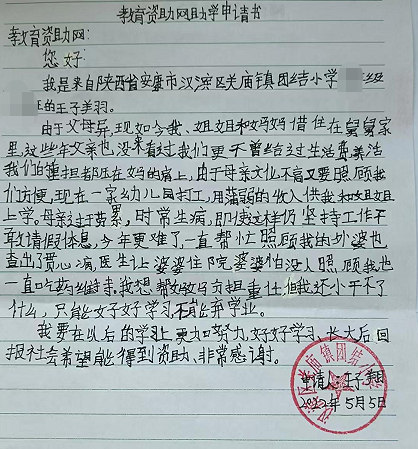 教育资助网助学申请书
教育资助网：
您好
我是来自陕西省安康市汉滨区关庙镇团结小学 级
的王子羽。
由于父母异，现如今我、姐姐和妈妈借住在舅舅家
里，这些年父亲也没来看过我们更不曾给过生活费养活
我们的重担都压在妈的肩上，由于母亲文化不高又要照顾我
们方便，现在一家幼儿园打工，用薄弱的收入供我和姐姐
上学。母亲过于劳累，时常生病，即使这样仍坚持工作不
敢请假休息，今年更难了一直帮忙照顾我的外婆也
查出了冠心病医生让婆婆住院婆婆怕没人照顾我也
一直吃药维持。我想帮妈妈负担重任但我还小干不了
什么，只能好好学习不能弃学业。
我要在以后的学习上更加努力，好好学习，长大后回
报社会希望能得到资助、非常感谢。
申请人：王子翔
2022年5月5日
庙镇团结